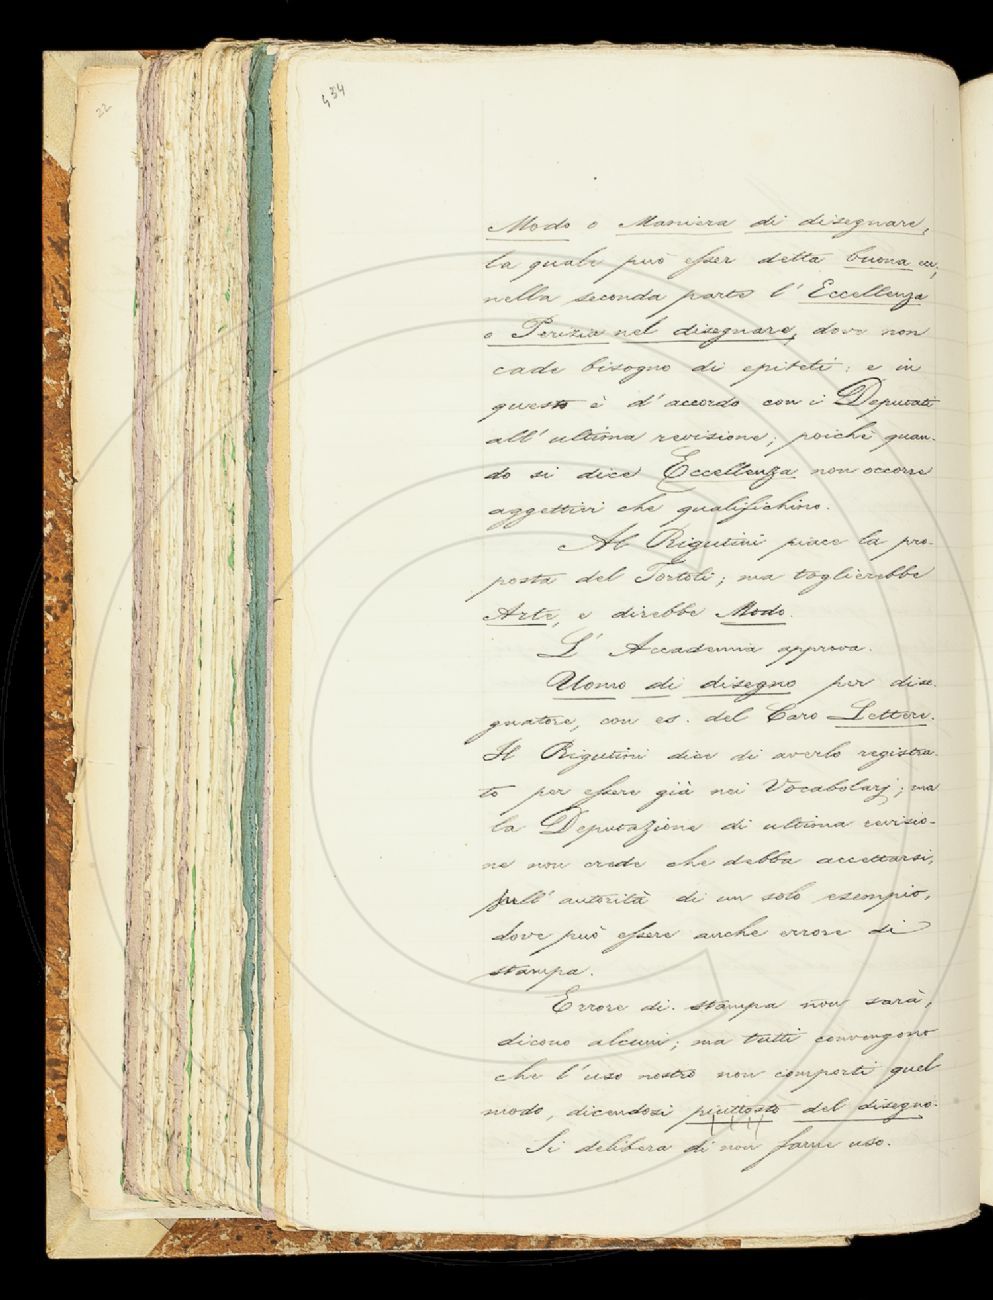 22
454
Modo o Maniera di disegnare,
la quale può esser detta buona ec;
nella seconda parte l' Eccellenza
o Perizia nel disegnare, dove non
cade bisogno di epiteti: e in
questo è d' accordo con i Deputati
all' ultima revisione; poichè quan-
do si dice Eccellenza non occorre
aggettivi che qualifichino.
Al Rigutini piace la pro-
posta del Tortoli; ma toglierebbe
Arte, e direbbe Modo.
L' Accademia approva.
Uomo di disegno per dise-
gnatore, con es. del Caro Lettere.
Il Rigutini dice di averlo registra-
to per essere già nei Vocabolarj; ma
la Deputazione di ultima revisio-
ne non crede che debba accettarsi,
sull' autorità di un solo esempio,
dove può essere anche errore di
stampa.
Errore di stampa non sarà,
dicono alcuni; ma tutti convengono
che l' uso nostro non comporti quel
modo, dicendosi piuttosto del disegno.
Si delibera di non farne uso.